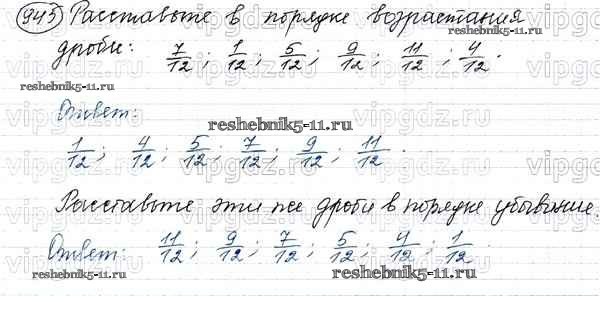 943) Расставьте в порядке возрастания
дроби: 7/12; 1/12; 5/12; 9/12; 11/12; 4/12.
reshebnik5-11.ru
reshebnik5-11.ru
Ответ:
reshebnik5-11.ru
1/12; 4/12; 5/12; 7/12; 9/12; 11/12.
Расставьте эти же дроби в порядке убывание.
Ответ: 11/12; 9/12; 7/12; 5/12; 4/12; 1/12.
reshebnik5-11.ru
reshebnik5-11.ru